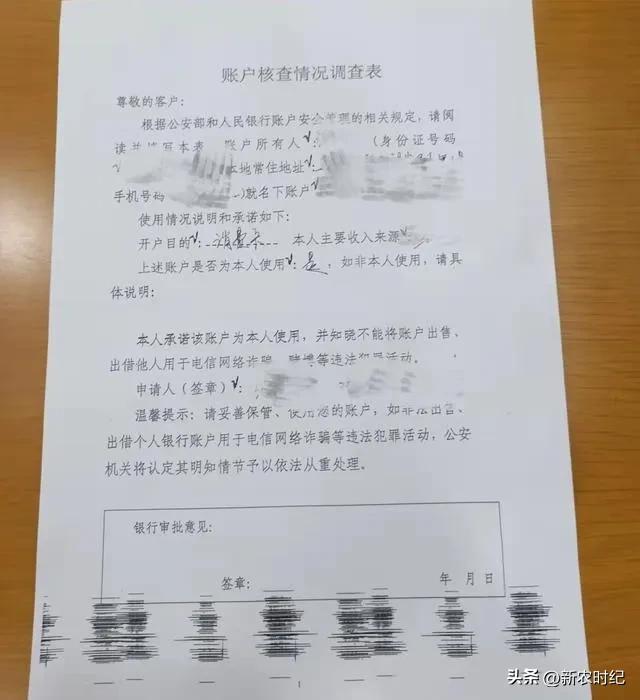 账户核查情况调查表
尊敬的客户：
根据公安部和人民银行账户安全管理的相关规定，请阅
读并填写本表 账户所有人√： （身份证号码
√ 本地常住地址√
手机号码 ）就名下账户√
使用情况说明和承诺如下：
开户目的√： 本人主要收入来源√
上述账户是否为本人使用√：是，如非本人使用，请具
体说明：
本人承诺该账户为本人使用，并知晓不能将账户出售、
出借他人用于电信网络诈骗、赌博等违法犯罪活动。
申请人（签章）√：
温馨提示：请妥善保管、使用您的账户，如非法出售、
出借个人银行账户用于电信网络诈骗等违法犯罪活动，公安
机关将认定其明知情节予以依法从重处理。
银行审批意见：
签章： 年 月 日
1
头条 @新农时纪